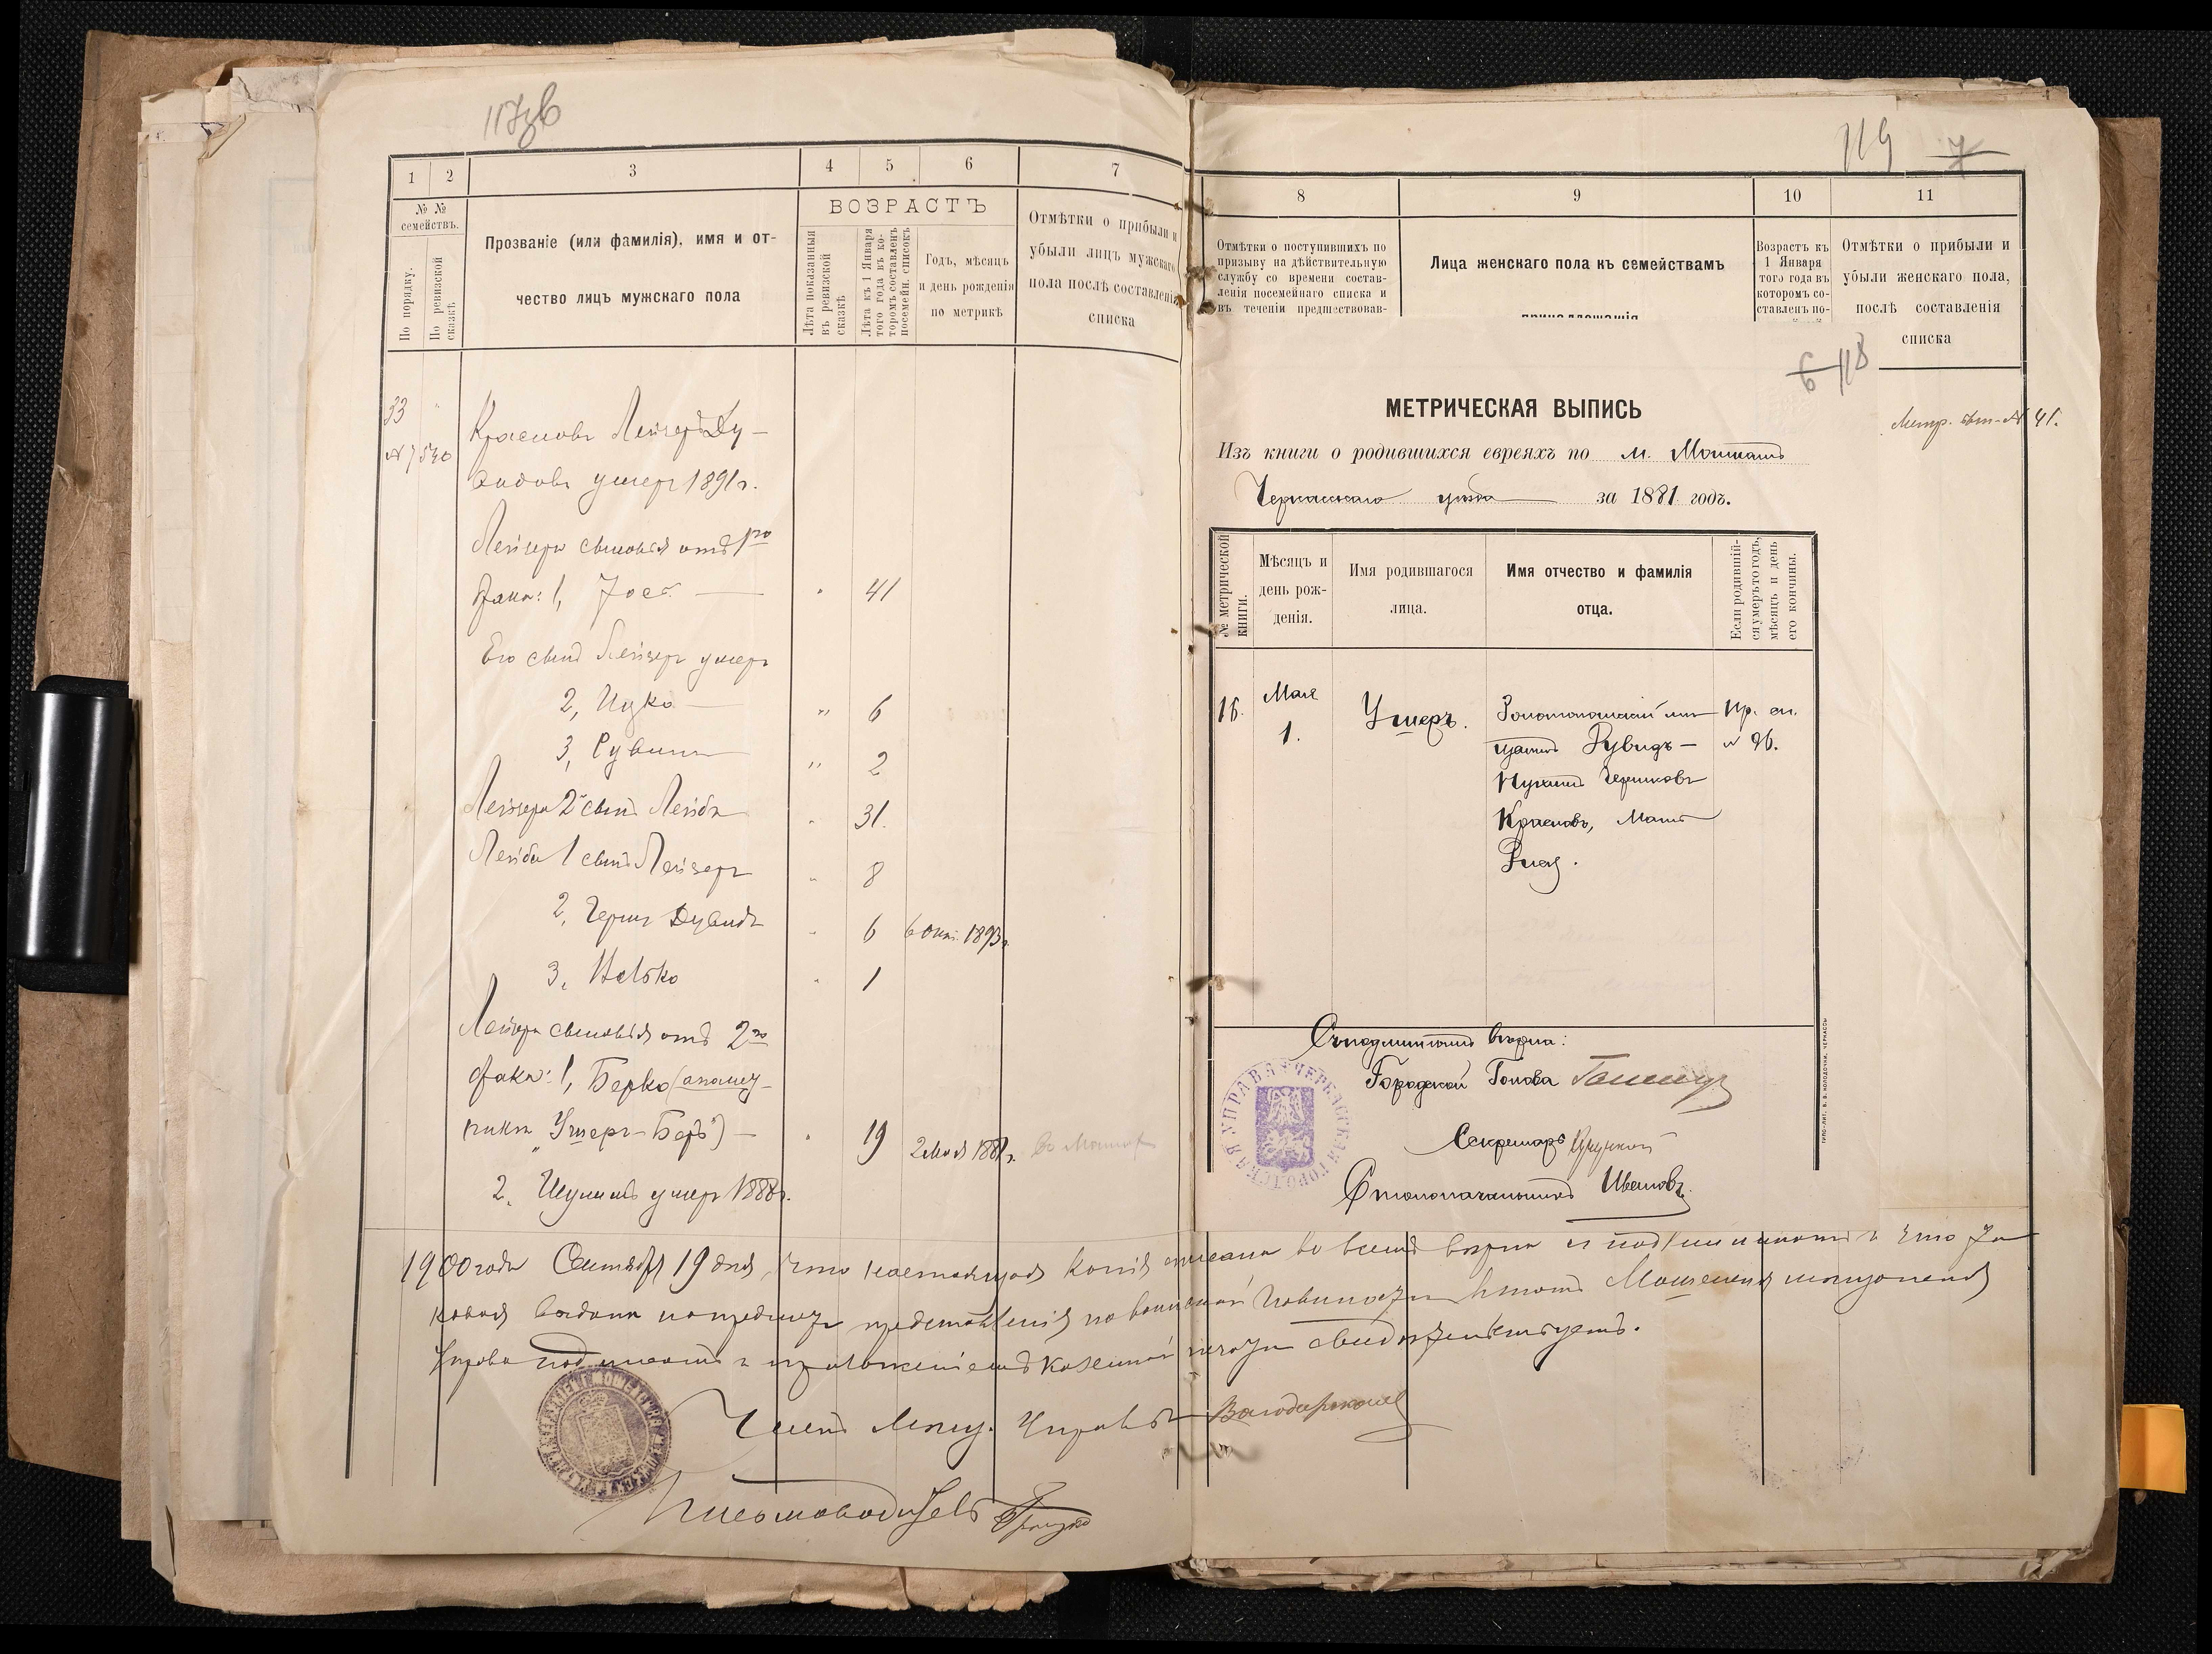 117об
1
2
3
4
5
6
7
№ №
семействъ.
По порядку.
По ревизской
сказкѣ
Прозваніе (или фамилія), имя и от-
чество лицъ мужскаго пола
ВОЗРАСТЪ
Лѣта показанныя
въ ревизской
сказкѣ
Лѣта къ 1 Января
того года въ ко-
торомъ составленъ
посемейн. списокъ
Годъ, мѣсяцъ
и день рожденія
по метрикѣ
Отмѣтки о прибыли и
убыли лицъ мужскаго
пола послѣ составленія
списка
33
№ 7540
Красновъ Лейзеръ Ду-
видовъ умеръ 1891 г.
Лейзера сыновья отъ 1го
брака: 1, Іосъ 41
Его сынъ Лейзеръ умеръ
2, Ицко " 6
3, Рувинъ " 2
Лейзера 2й сынъ Лейба " 31.
Лейбы 1 сынъ Лейзеръ " 8
2, Гершъ Дувидъ " 6 6 Окт. 1893 г.
3, Иосько " 1
Лейзера сыновья отъ 2го
брака: 1, Берко (по мет-
рикѣ "Ушеръ-Беръ") 19 2 Мая 1881 г.
2. Шулимъ умеръ 1888 г.
119 7
8
9
10
11
Отмѣтки о поступившихъ по
призыву на дѣйствительную
службу со времени состав-
ленія посемейнаго списка и
въ теченіи предшествовав-
Лица женскаго пола къ семействамъ
принадлежащія
Возрастъ къ
1 Января
того года въ
которомъ со-
ставленъ по-
Отмѣтки о прибыли и
убыли женскаго пола,
послѣ составленія
списка
6 118
МЕТРИЧЕСКАЯ ВЫПИСЬ
Изъ книги о родившихся евреяхъ по м. Мошнамъ
Черкасскаго уѣзда за 1881 годъ.
№ метрической
книги.
Мѣсяцъ и
день рож-
денія.
Имя родившагося
лица.
Имя отчество и фамилія
отца.
Если родивший-
ся умеръ то годъ,
мѣсяцъ и день
его кончины.
16.
Мая
1.
Ушеръ.
Золотоношскій мѣ-
щанинъ Дувидъ-
Нухимъ Гершковъ
Красновъ, Мать
Пр. сп.
№ 96.
Съ подлиннымъ вѣрно:
Городской Голова
Секретарь
Столоначальникъ Ивановъ.
ЧЕРКАССКАЯ ГОРОДСКАЯ УПРАВА
ТИПО-ЛИТ. В. В. КОЛОДОЧКИ, ЧЕРКАССЫ
1900 года Сентября 19 дня, что настоящая копія списана во всемъ вѣрна съ подлинникомъ и что та-
ковая выдана на предметъ представленія по воинской повинности въ томъ Мошенская мѣщанская
Управа подписомъ и приложеніемъ казенной печати свидѣтельствуетъ.
Членъ Мѣщ. Управы
Письмоводитель